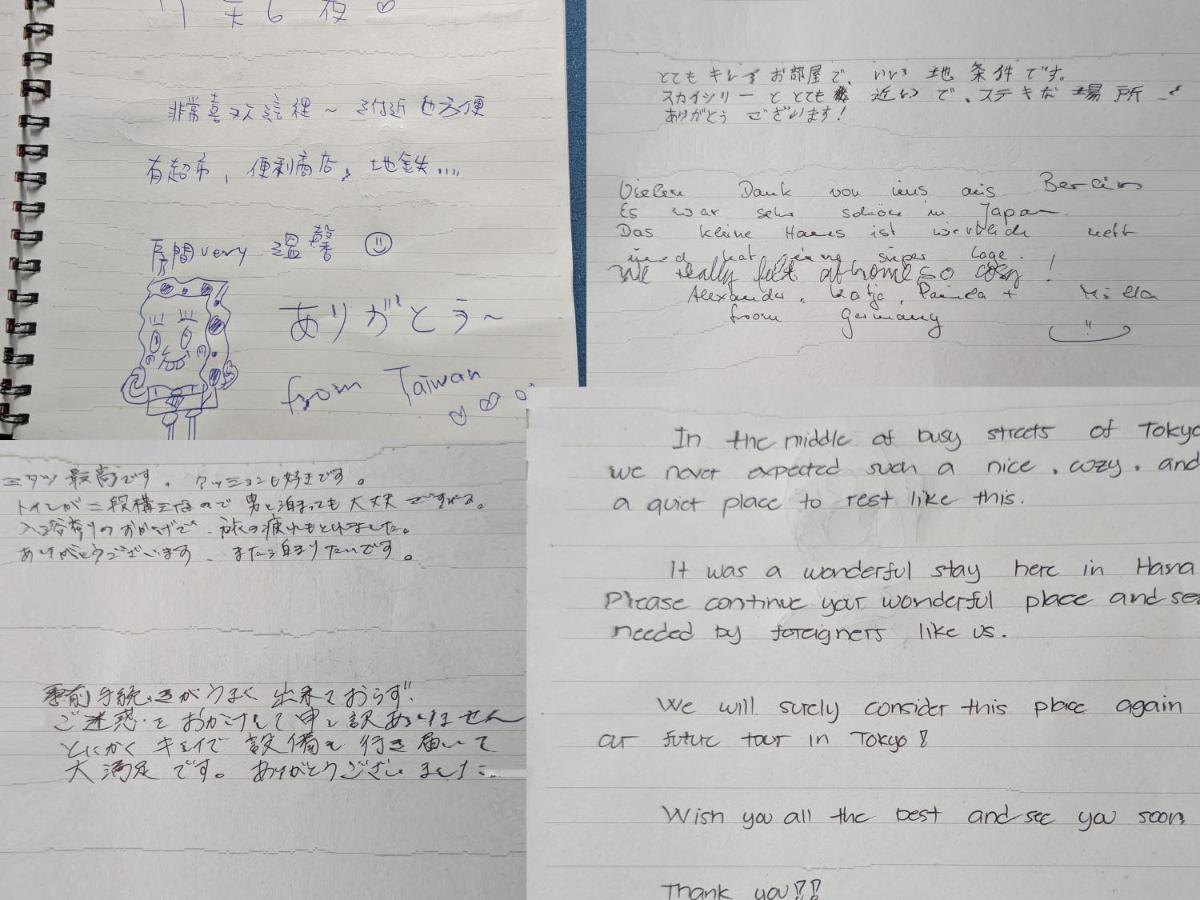 非常喜欢這裡～附近也方便
有超市，便利商店，地鉄....
房間very 温馨
ありがとう～
from Taiwan
とても キレイ お部屋で、いい 地 条件です。
スカイシリーと とても 近いで、ステキだ 場所
ありがとう ございます!
Vielen Dank von uns aus Berlin
Es war sehr schön in Japan.
Das kleine Haus ist wirklich nett
und hat eine super Lage. !
We really felt at home so cosy!
Alexander, Katja, +
from Germany
最高です。クッションも好きです。
トイレが二段構えなので 男と泊っても 大丈夫
おかげで、旅の疲れもとれました。
ありがとうございます、また泊まりたいです。
事前手続きがうまく 出来ておらず、
ご迷惑を おかけして 申し訳ありません
とにかく キレイで 設備も 行き届いて
大満足です。ありがとうございました
In the middle of busy streets of Tokyo
we never expected such a nice, cozy, and
a quiet place to rest like this.
It was a wonderful stay here in Hana
Please continue your wonderful place and
needed by foreigners like us.
We will surely consider this place again
our future tour in Tokyo!
Wish you all the best and see you soon
Thank you!!